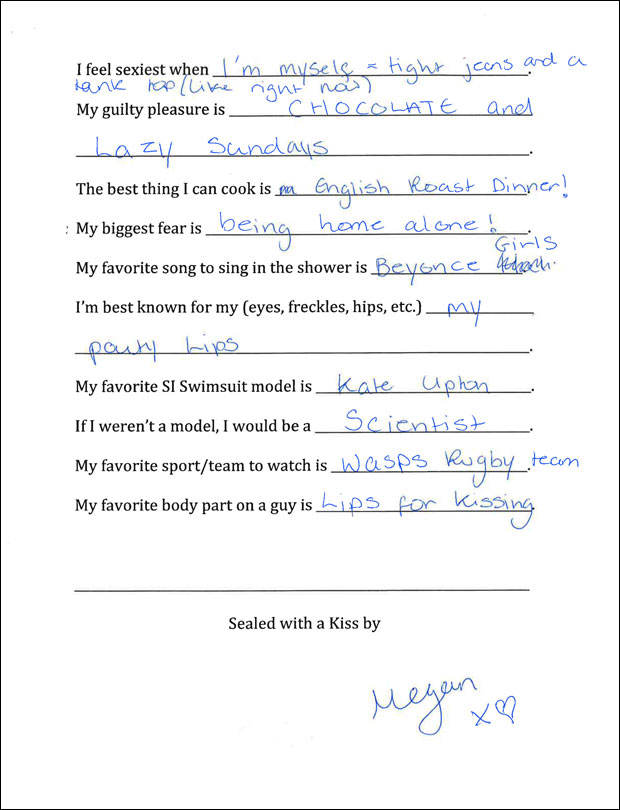 I feel sexiest when I'm myself = tight jeans and a
tank top (like right now)
My guilty pleasure is CHOCOLATE and
Lazy Sundays.
The best thing I can cook is English Roast Dinner!
: My biggest fear is being home alone!.
Girls
My favorite song to sing in the shower is Beyonce.
I'm best known for my (eyes, freckles, hips, etc.) my
pouty Lips.
My favorite SI Swimsuit model is Kate Upton.
If I weren't a model, I would be a Scientist.
My favorite sport/team to watch is Wasps Rugby. team
My favorite body part on a guy is Lips for Kissing.
Sealed with a Kiss by
Megan
x♡